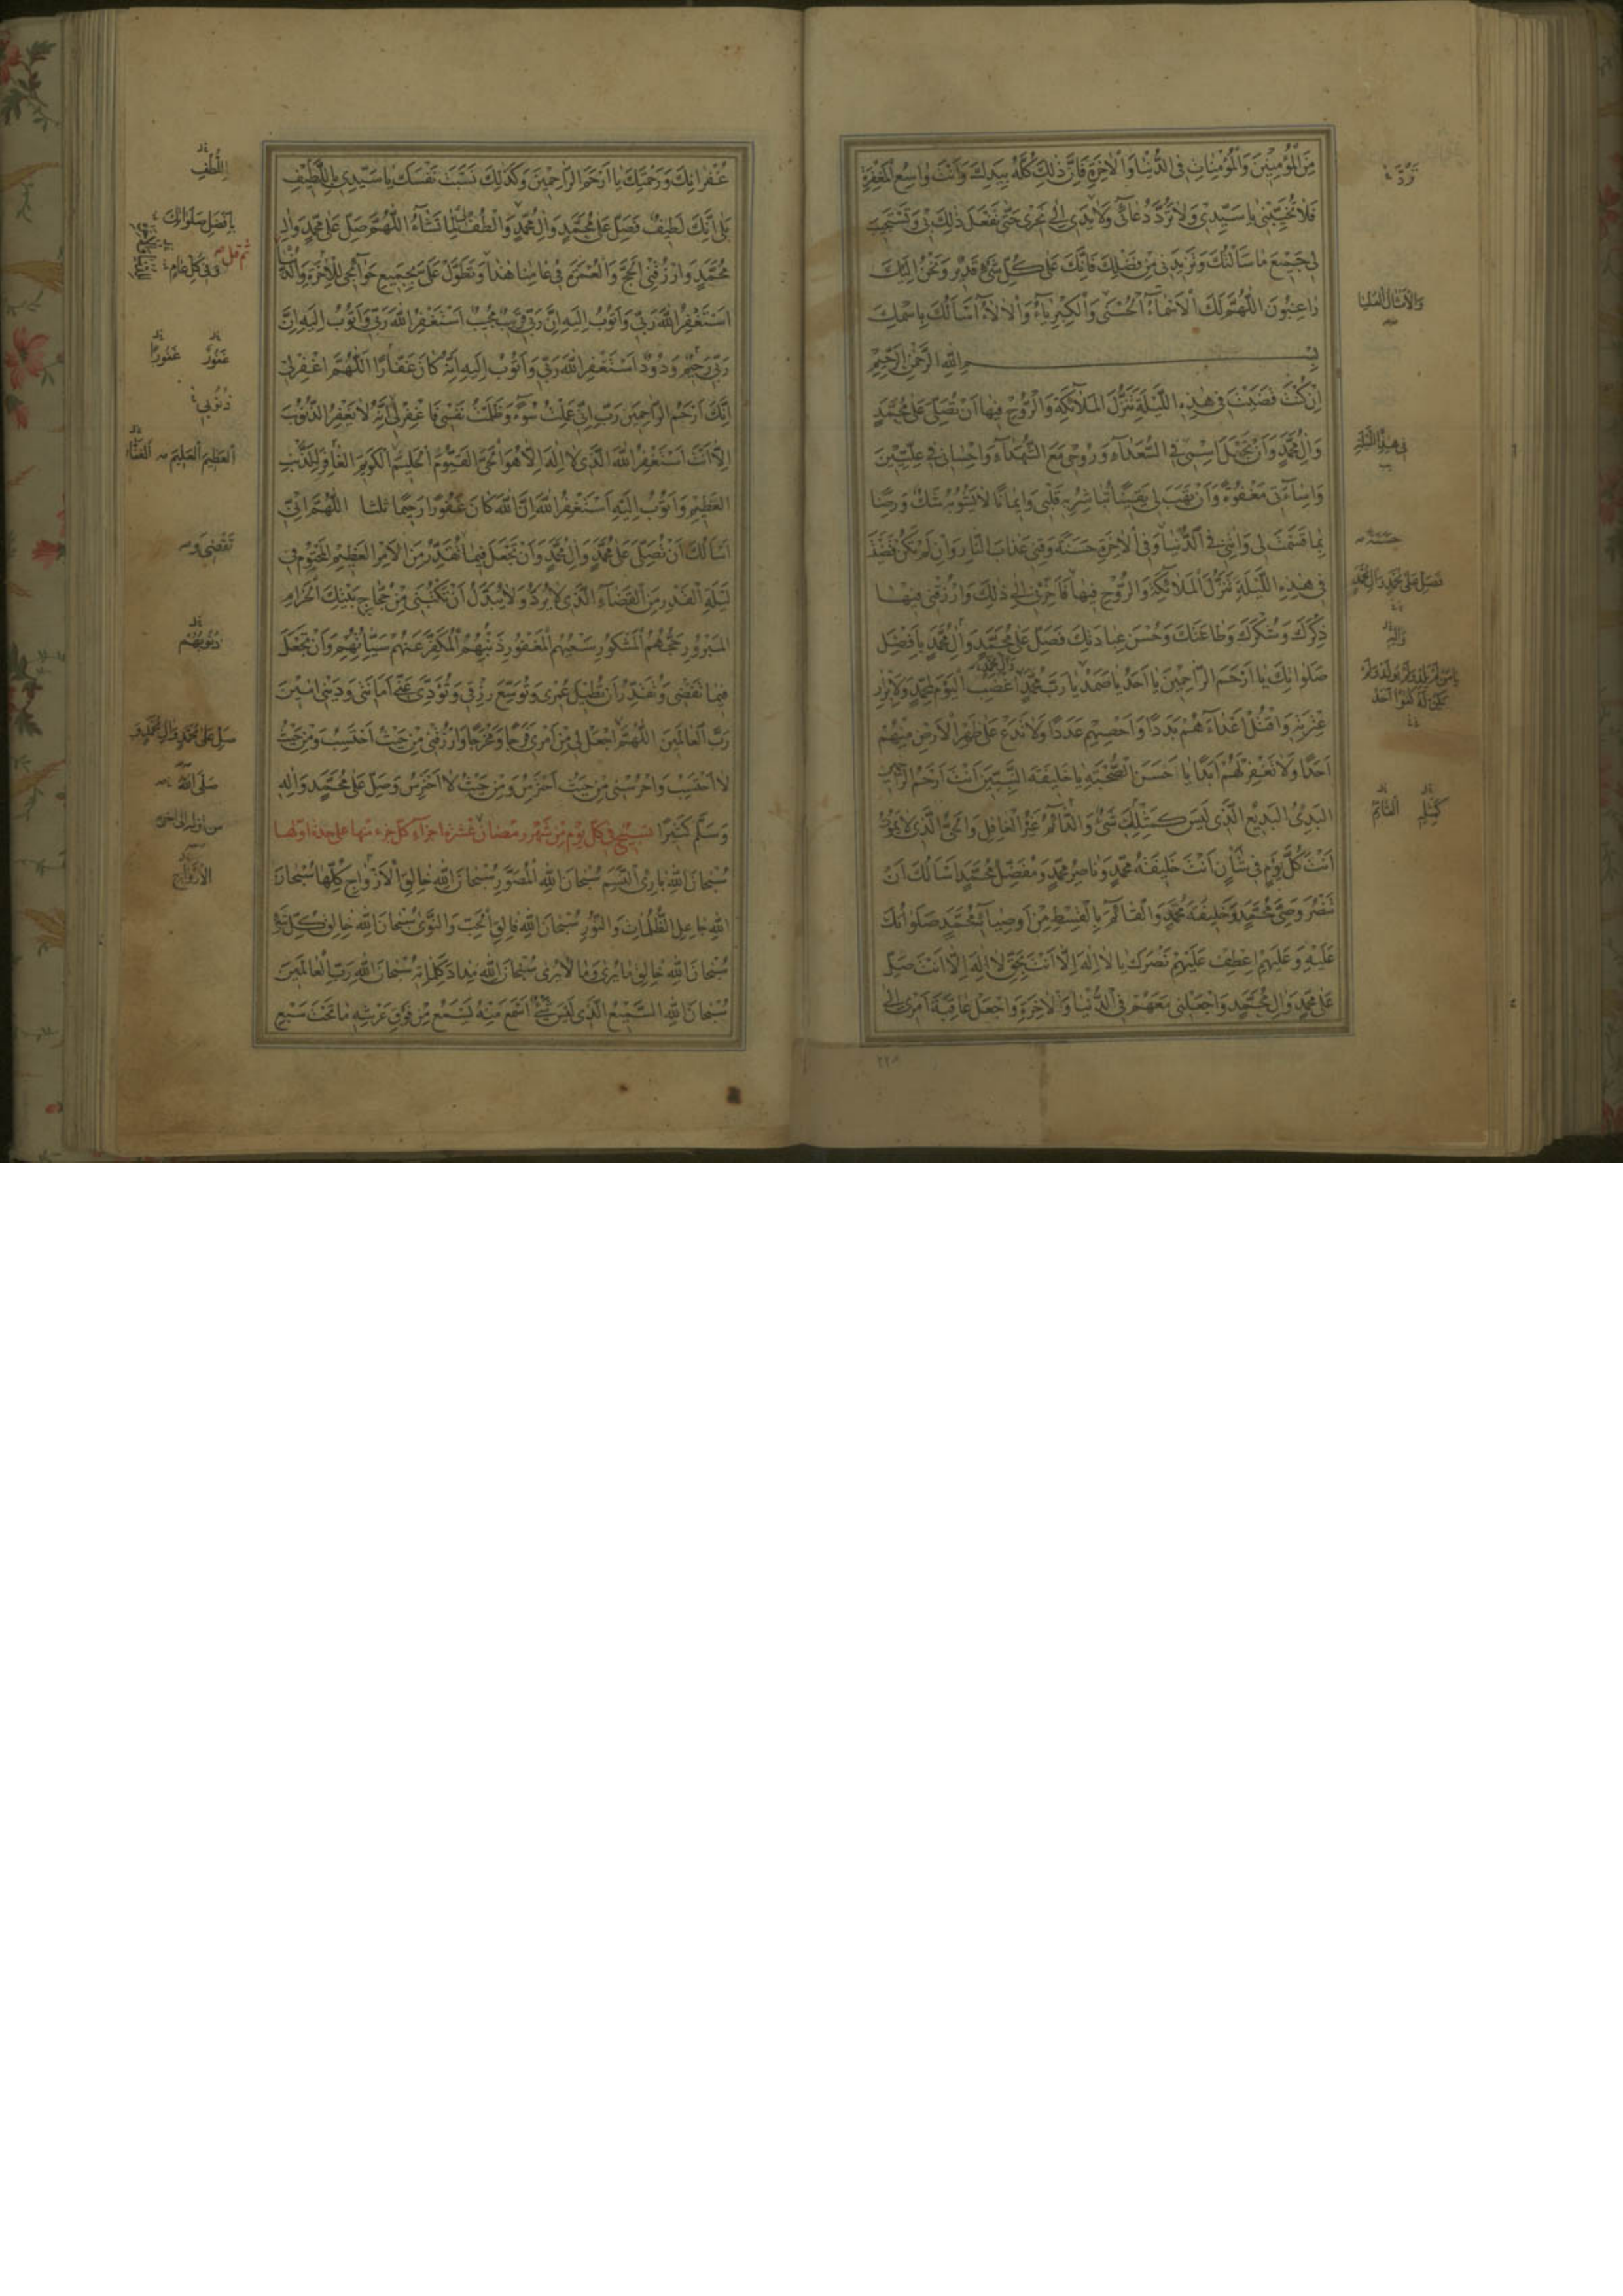 مِنَ الْمُؤْمِنِينَ وَالْمُؤْمِنَاتِ فِي الدُّنْيَا وَالْآخِرَةِ فَإِنَّ ذٰلِكَ كُلَّهُ بِيَدِكَ وَأَنْتَ وَاسِعُ الْمَغْفِرَةِ
فَلَا تُخَيِّبْنِي يَا سَيِّدِي وَلَا تَرُدَّ دُعَائِي وَلَا يَدِي إِلَى نَحْرِي حَتَّى تَفْعَلَ ذٰلِكَ بِي وَتَسْتَجِيبَ
لِي جَمِيعَ مَا سَأَلْتُكَ وَتَزِيدَنِي مِنْ فَضْلِكَ فَإِنَّكَ عَلَى كُلِّ شَيْءٍ قَدِيرٌ وَنَحْنُ إِلَيْكَ
رَاغِبُونَ اللّٰهُمَّ لَكَ الْأَسْمَاءُ الْحُسْنَى وَالْكِبْرِيَاءُ وَالْآلَاءُ أَسْأَلُكَ بِاسْمِكَ
بِسْمِ اللّٰهِ الرَّحْمٰنِ الرَّحِيمِ
إِنْ كُنْتَ قَضَيْتَ فِي هٰذِهِ اللَّيْلَةِ تَنَزُّلَ الْمَلَائِكَةِ وَالرُّوحِ فِيهَا أَنْ تُصَلِّيَ عَلَى مُحَمَّدٍ
وَآلِ مُحَمَّدٍ وَأَنْ تَجْعَلَ اسْمِي فِي السُّعَدَاءِ وَرُوحِي مَعَ الشُّهَدَاءِ وَإِحْسَانِي فِي عِلِّيِّينَ
وَإِسَاءَتِي مَغْفُورَةً وَأَنْ تَهَبَ لِي يَقِينًا تُبَاشِرُ بِهِ قَلْبِي وَإِيمَانًا لَا يَشُوبُهُ شَكٌّ وَرِضًا
بِمَا قَسَمْتَ لِي وَآتِنِي فِي الدُّنْيَا وَفِي الْآخِرَةِ حَسَنَةً وَقِنِي عَذَابَ النَّارِ وَإِنْ لَمْ تَكُنْ قَضَيْتَ
فِي هٰذِهِ اللَّيْلَةِ تَنَزُّلَ الْمَلَائِكَةِ وَالرُّوحِ فِيهَا فَأَخِّرْنِي إِلَى ذٰلِكَ وَارْزُقْنِي فِيهَا
ذِكْرَكَ وَشُكْرَكَ وَطَاعَتَكَ وَحُسْنَ عِبَادَتِكَ فَصَلِّ عَلَى مُحَمَّدٍ وَآلِ مُحَمَّدٍ بِأَفْضَلِ
صَلَوَاتِكَ يَا أَرْحَمَ الرَّاحِمِينَ يَا أَحَدُ يَا صَمَدُ يَا رَبَّ مُحَمَّدٍ اغْضَبِ الْيَوْمَ لِمُحَمَّدٍ وَلِأَبْرَارِ
عِتْرَتِهِ وَاقْتُلْ أَعْدَاءَهُمْ بَدَدًا وَأَحْصِهِمْ عَدَدًا وَلَا تَدَعْ عَلَى ظَهْرِ الْأَرْضِ مِنْهُمْ
أَحَدًا وَلَا تَغْفِرْ لَهُمْ أَبَدًا يَا أَحْسَنَ الصُّحْبَةِ يَا خَلِيفَةَ النَّبِيِّينَ أَنْتَ أَرْحَمُ الرَّاحِمِينَ
الْبَدِيءُ الْبَدِيعُ الَّذِي لَيْسَ كَمِثْلِكَ شَيْءٌ وَالْقَائِمُ غَيْرُ الْغَافِلِ وَالْحَيُّ الَّذِي لَا يَمُوتُ
أَنْتَ كُلَّ يَوْمٍ فِي شَأْنٍ أَنْتَ خَلِيفَةُ مُحَمَّدٍ وَنَاصِرُ مُحَمَّدٍ وَمُفَضِّلُ مُحَمَّدٍ أَسْأَلُكَ أَنْ
تَنْصُرَ وَصِيَّ مُحَمَّدٍ وَخَلِيفَةَ مُحَمَّدٍ وَالْقَائِمَ بِالْقِسْطِ مِنْ أَوْصِيَاءِ مُحَمَّدٍ صَلَوَاتُكَ
عَلَيْهِ وَعَلَيْهِمْ اِعْطِفْ عَلَيْهِمْ نَصْرَكَ يَا لَا إِلٰهَ إِلَّا أَنْتَ بِحَقِّ لَا إِلٰهَ إِلَّا أَنْتَ صَلِّ
عَلَى مُحَمَّدٍ وَآلِ مُحَمَّدٍ وَاجْعَلْنِي مَعَهُمْ فِي الدُّنْيَا وَالْآخِرَةِ وَاجْعَلْ عَاقِبَةَ أَمْرِي إِلَى
تَرُدَّ
وَالْأَمْثَالُ الْعُلْيَا
فِي هٰذِهِ اللَّيْلَةِ
حَسَنَةً
فَصَلِّ عَلَى مُحَمَّدٍ وَآلِ مُحَمَّدٍ
كَمِثْلِهِ الدَّائِمُ
غُفْرَانِكَ وَرَحْمَتِكَ يَا أَرْحَمَ الرَّاحِمِينَ وَكَذٰلِكَ نَسَبْتَ نَفْسَكَ يَا سَيِّدِي بِاللَّطِيفِ
بَلَى إِنَّكَ لَطِيفٌ فَصَلِّ عَلَى مُحَمَّدٍ وَآلِ مُحَمَّدٍ وَالْطُفْ لِي لِمَا تَشَاءُ اللّٰهُمَّ صَلِّ عَلَى مُحَمَّدٍ وَآلِ
مُحَمَّدٍ وَارْزُقْنِي الْحَجَّ وَالْعُمْرَةَ فِي عَامِنَا هٰذَا وَتَطَوَّلْ عَلَيَّ بِجَمِيعِ حَوَائِجِي لِلْآخِرَةِ وَالدُّنْيَا
أَسْتَغْفِرُ اللّٰهَ رَبِّي وَأَتُوبُ إِلَيْهِ إِنَّ رَبِّي قَرِيبٌ مُجِيبٌ أَسْتَغْفِرُ اللّٰهَ رَبِّي وَأَتُوبُ إِلَيْهِ إِنَّ
رَبِّي رَحِيمٌ وَدُودٌ أَسْتَغْفِرُ اللّٰهَ رَبِّي وَأَتُوبُ إِلَيْهِ إِنَّهُ كَانَ غَفَّارًا اللّٰهُمَّ اغْفِرْ لِي
إِنَّكَ أَرْحَمُ الرَّاحِمِينَ رَبِّ إِنِّي عَمِلْتُ سُوءً وَظَلَمْتُ نَفْسِي فَاغْفِرْ لِي إِنَّهُ لَا يَغْفِرُ الذُّنُوبَ
إِلَّا أَنْتَ أَسْتَغْفِرُ اللّٰهَ الَّذِي لَا إِلٰهَ إِلَّا هُوَ الْحَيُّ الْقَيُّومُ الْحَلِيمُ الْكَرِيمُ الْغَافِرُ لِلذَّنْبِ
الْعَظِيمِ وَأَتُوبُ إِلَيْهِ أَسْتَغْفِرُ اللّٰهَ إِنَّ اللّٰهَ كَانَ غَفُورًا رَحِيمًا ثلثا اللّٰهُمَّ إِنِّي
أَسْأَلُكَ أَنْ تُصَلِّيَ عَلَى مُحَمَّدٍ وَآلِ مُحَمَّدٍ وَأَنْ تَجْعَلَ فِيمَا تُقَدِّرُ مِنَ الْأَمْرِ الْعَظِيمِ الْمَحْتُومِ فِي
لَيْلَةِ الْقَدْرِ مِنَ الْقَضَاءِ الَّذِي لَا يُرَدُّ وَلَا يُبَدَّلُ أَنْ تَكْتُبَنِي مِنْ حُجَّاجِ بَيْتِكَ الْحَرَامِ
الْمَبْرُورِ حَجُّهُمُ الْمَشْكُورِ سَعْيُهُمُ الْمَغْفُورِ ذَنْبُهُمُ الْمُكَفَّرِ عَنْهُمْ سَيِّئَاتُهُمْ وَأَنْ تَجْعَلَ
فِيمَا تَقْضِي وَتُقَدِّرُ أَنْ تُطِيلَ عُمْرِي وَتُوَسِّعَ رِزْقِي وَتُؤَدِّيَ عَنِّي أَمَانَتِي وَدَيْنِي آمِينَ
رَبَّ الْعَالَمِينَ اللّٰهُمَّ اجْعَلْ لِي مِنْ أَمْرِي فَرَجًا وَمَخْرَجًا وَارْزُقْنِي مِنْ حَيْثُ أَحْتَسِبُ وَمِنْ حَيْثُ
لَا أَحْتَسِبُ وَاحْرُسْنِي مِنْ حَيْثُ أَحْتَرِسُ وَمِنْ حَيْثُ لَا أَحْتَرِسُ وَصَلِّ عَلَى مُحَمَّدٍ وَآلِهِ
وَسَلِّمْ كَثِيرًا تسبيح في كل يوم من شهر رمضان عشرة اجزاء كل جزء منها على حدة اولها
سُبْحَانَ اللّٰهِ بَارِئِ النَّسَمِ سُبْحَانَ اللّٰهِ الْمُصَوِّرِ سُبْحَانَ اللّٰهِ خَالِقِ الْأَزْوَاجِ كُلِّهَا سُبْحَانَ
اللّٰهِ جَاعِلِ الظُّلُمَاتِ وَالنُّورِ سُبْحَانَ اللّٰهِ فَالِقِ الْحَبِّ وَالنَّوَى سُبْحَانَ اللّٰهِ خَالِقِ كُلِّ شَيْءٍ
سُبْحَانَ اللّٰهِ خَالِقِ مَا يُرَى وَمَا لَا يُرَى سُبْحَانَ اللّٰهِ مِدَادَ كَلِمَاتِهِ سُبْحَانَ اللّٰهِ رَبِّ الْعَالَمِينَ
سُبْحَانَ اللّٰهِ السَّمِيعِ الَّذِي لَيْسَ شَيْءٌ أَسْمَعَ مِنْهُ يَسْمَعُ مِنْ فَوْقِ عَرْشِهِ مَا تَحْتَ سَبْعِ
بِأَفْضَلِ صَلَوَاتِكَ
ثم قل
وَفِي كُلِّ عَامٍ
غَفُورٌ غَفُورًا
ذُنُوبِي
الْعَظِيمَ الْعَلِيمَ
تَقْضِي وَ
ذُنُوبُهُمْ
صَلِّ عَلَى مُحَمَّدٍ وَآلِ مُحَمَّدٍ وَ
صَلَّى اللّٰهُ
من اوله الى آخره
الْأَزْوَاجِ